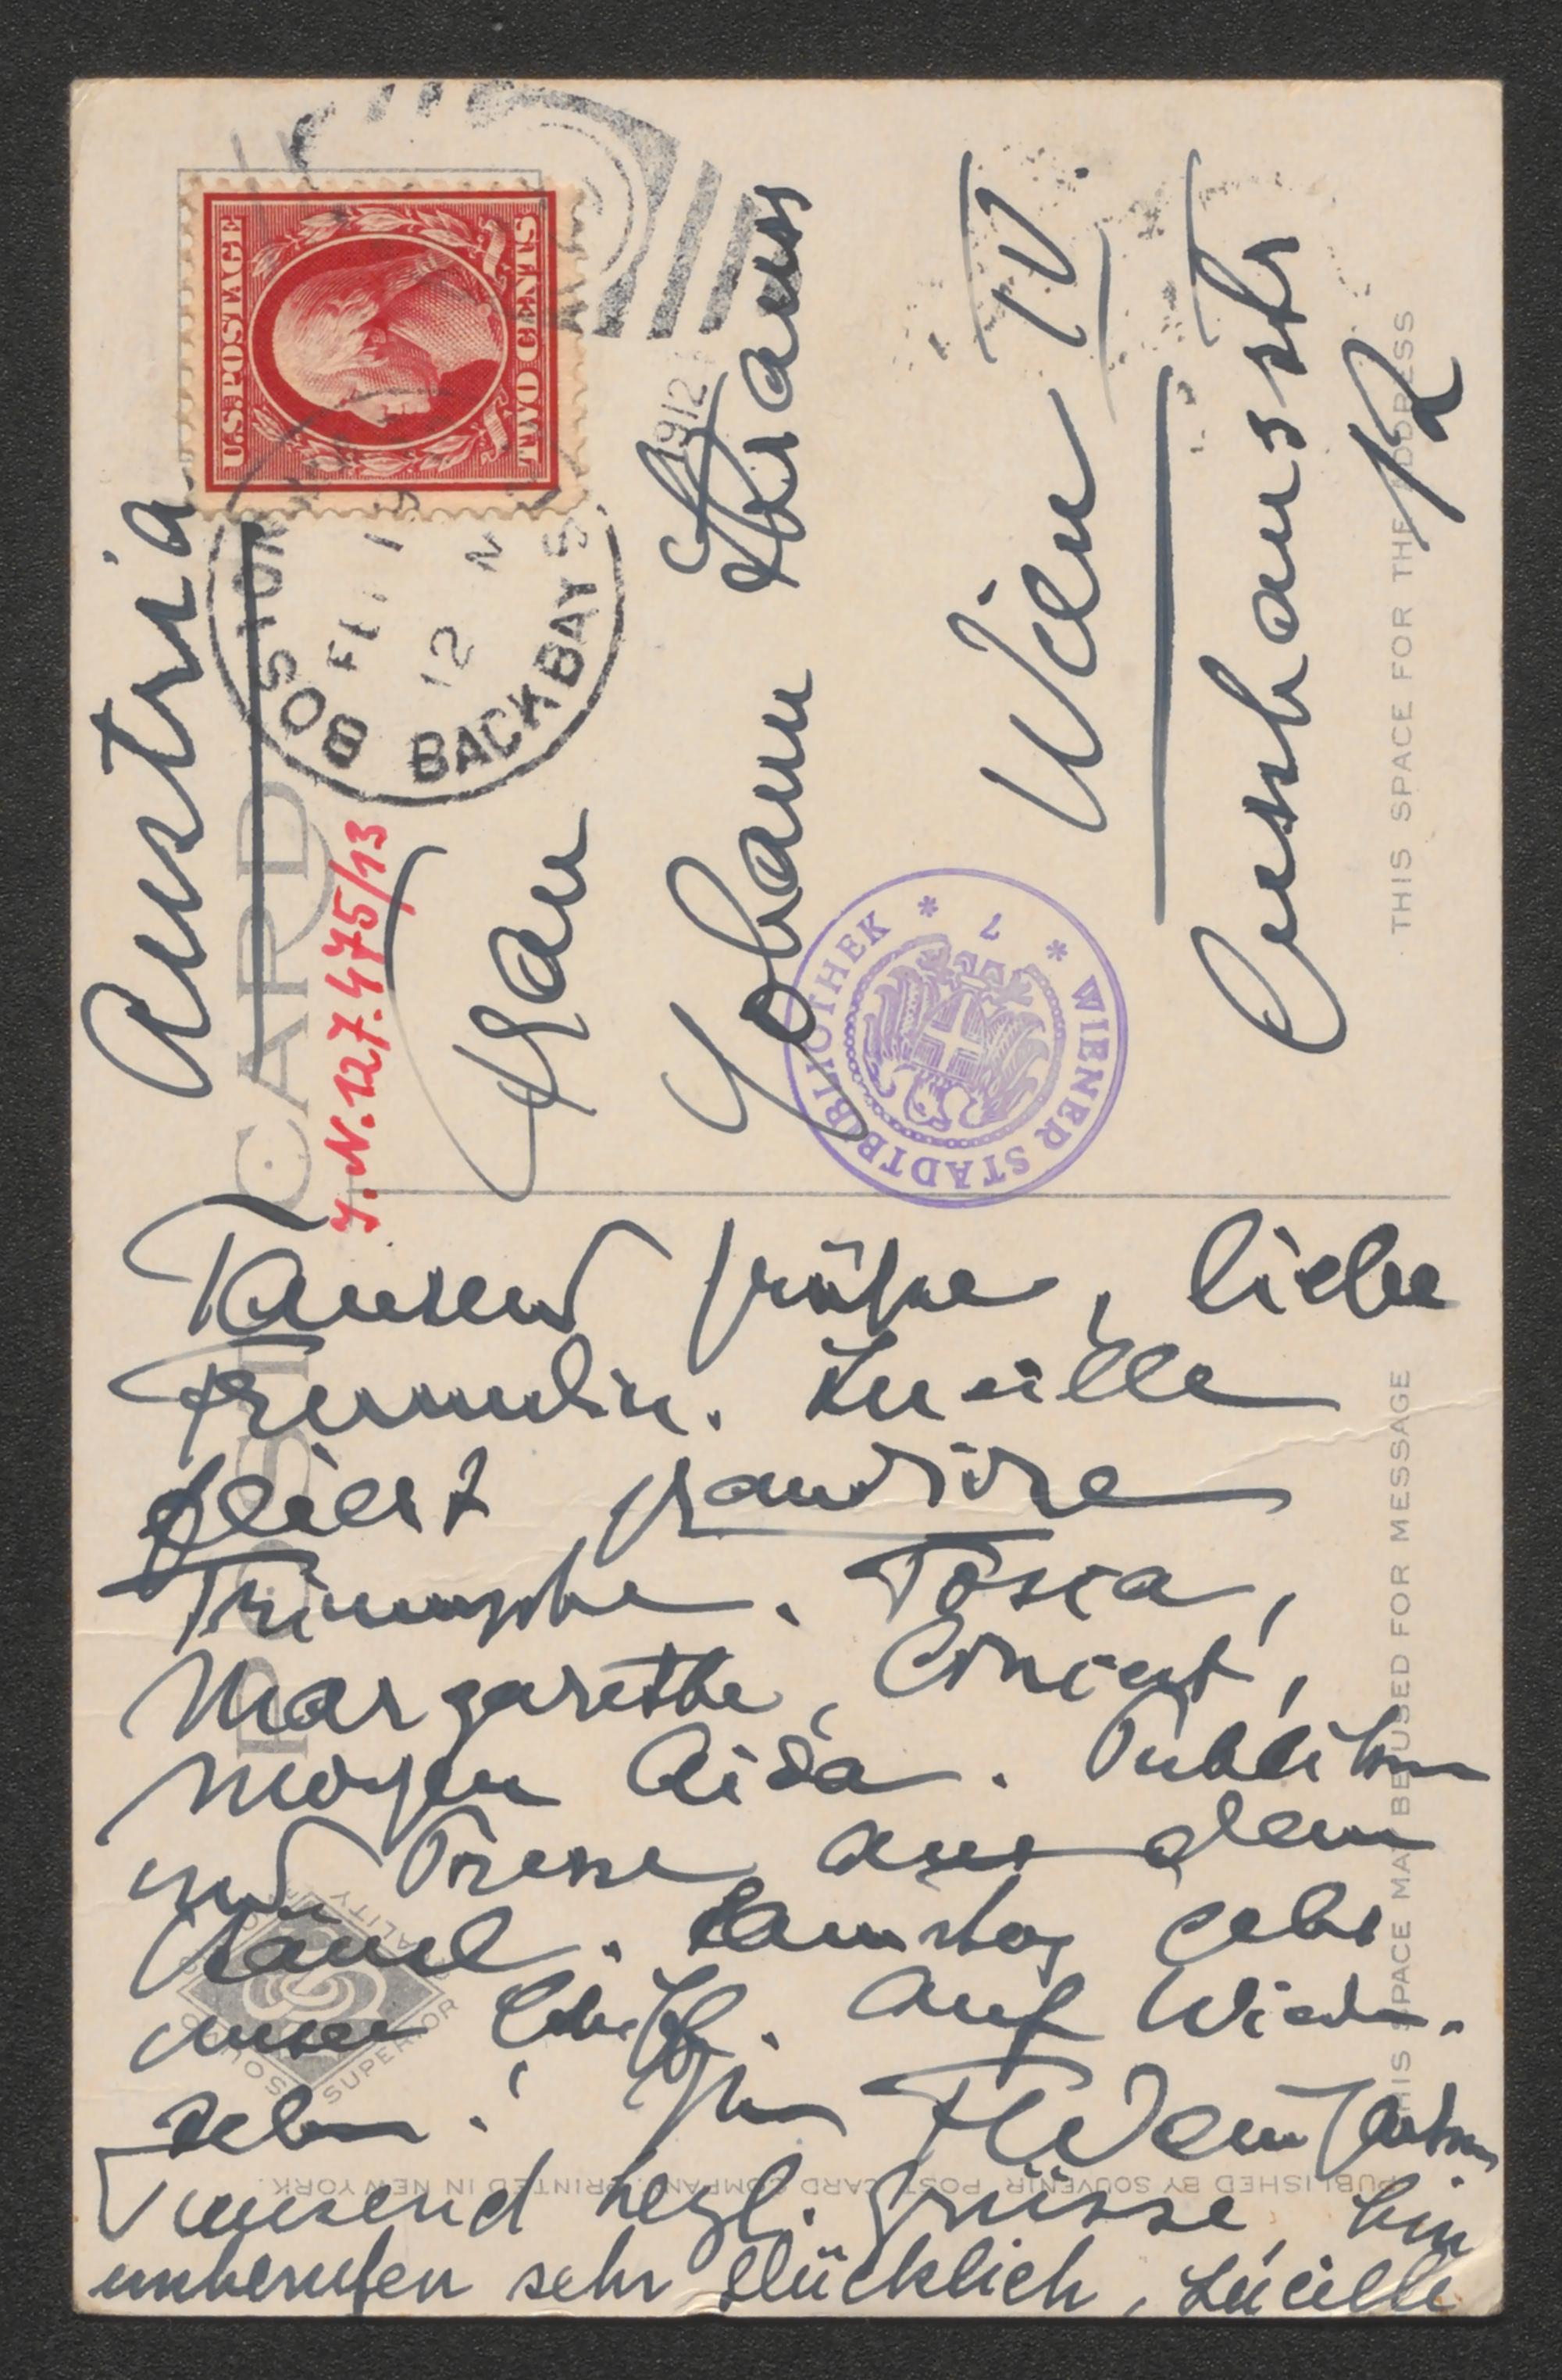 Austria
U.S. POSTAGE
TWO CENTS
BOSTON
12 M
BACK BAY
1912
POST CARD
J. N. 127.475/13
Frau
Johann Strauss
Wien IV
Gusshausstr
12
WIENER STADTBIBLIOTHEK * 7 *
THIS SPACE FOR THE ADDRESS
Tausend Grüße, liebe
Freundin. Lucille
feiert grandiose
Triumphe. Tosca,
Margarethe, Concert,
morgen Aida. Publikum
und Presse aus dem
Häusl. Samstag geht
unser Schiff. Auf Wieder-
sehen. Ihr
Tausend herzl. Grüsse, bin
unberufen sehr glücklich, Lucille
THIS SPACE MAY BE USED FOR MESSAGE
PUBLISHED BY SOUVENIR POST CARD COMPANY. PRINTED IN NEW YORK.
QUALITY
SUPERIOR